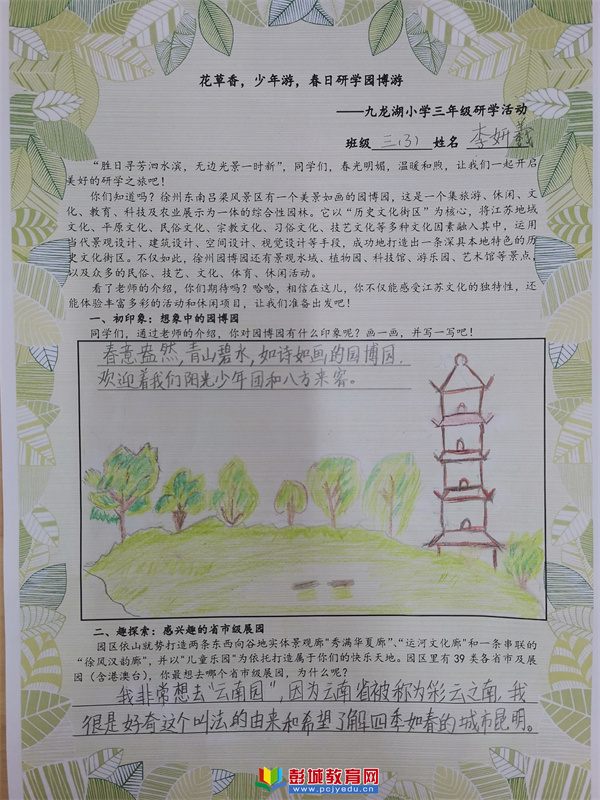 花草香，少年游，春日研学园博游
——九龙湖小学三年级研学活动
班级 三(3) 姓名 李妍羲
“胜日寻芳泗水滨，无边光景一时新”，同学们，春光明媚，温暖和煦，让我们一起开启
美好的研学之旅吧！
你们知道吗？徐州东南吕梁风景区有一个美景如画的园博园，这是一个集旅游、休闲、文
化、教育、科技及农业展示为一体的综合性园林。它以“历史文化街区”为核心，将江苏地域
文化、平原文化、民俗文化、宗教文化、习俗文化、技艺文化等多种文化因素融入其中，运用
当代景观设计、建筑设计、空间设计、视觉设计等手段，成功地打造出一条深具本地特色的历
史文化街区。不仅如此，徐州园博园还有景观水域、植物园、科技馆、游乐园、艺术馆等景点，
以及众多的民俗、技艺、文化、体育、休闲活动。
看了老师的介绍，你们期待吗？哈哈，相信在这儿，你不仅能感受江苏文化的独特性，还
能体验丰富多彩的活动和休闲项目，让我们准备出发吧！
一、初印象：想象中的园博园
同学们，通过老师的介绍，你对园博园有什么印象呢？画一画，并写一写吧！
春意盎然，青山碧水，如诗如画的园博园，
欢迎着我们阳光少年团和八方来客。
二、趣探索：感兴趣的省市级展园
园区依山就势打造两条东西向谷地实体景观廊“秀满华夏廊”、“运河文化廊”和一条串联的
“徐风汉韵廊”，并以“儿童乐园”为依托打造属于你们的快乐天地。园区里有 39 类各省市及展
园（含港澳台），你最想去哪个省市级展园，为什么呢？
我非常想去“云南园”，因为云南省被称为彩云之南，我
很是好奇这个叫法的由来和希望了解四季如春的城市昆明。
彭城教育网
www.pcjyedu.cn